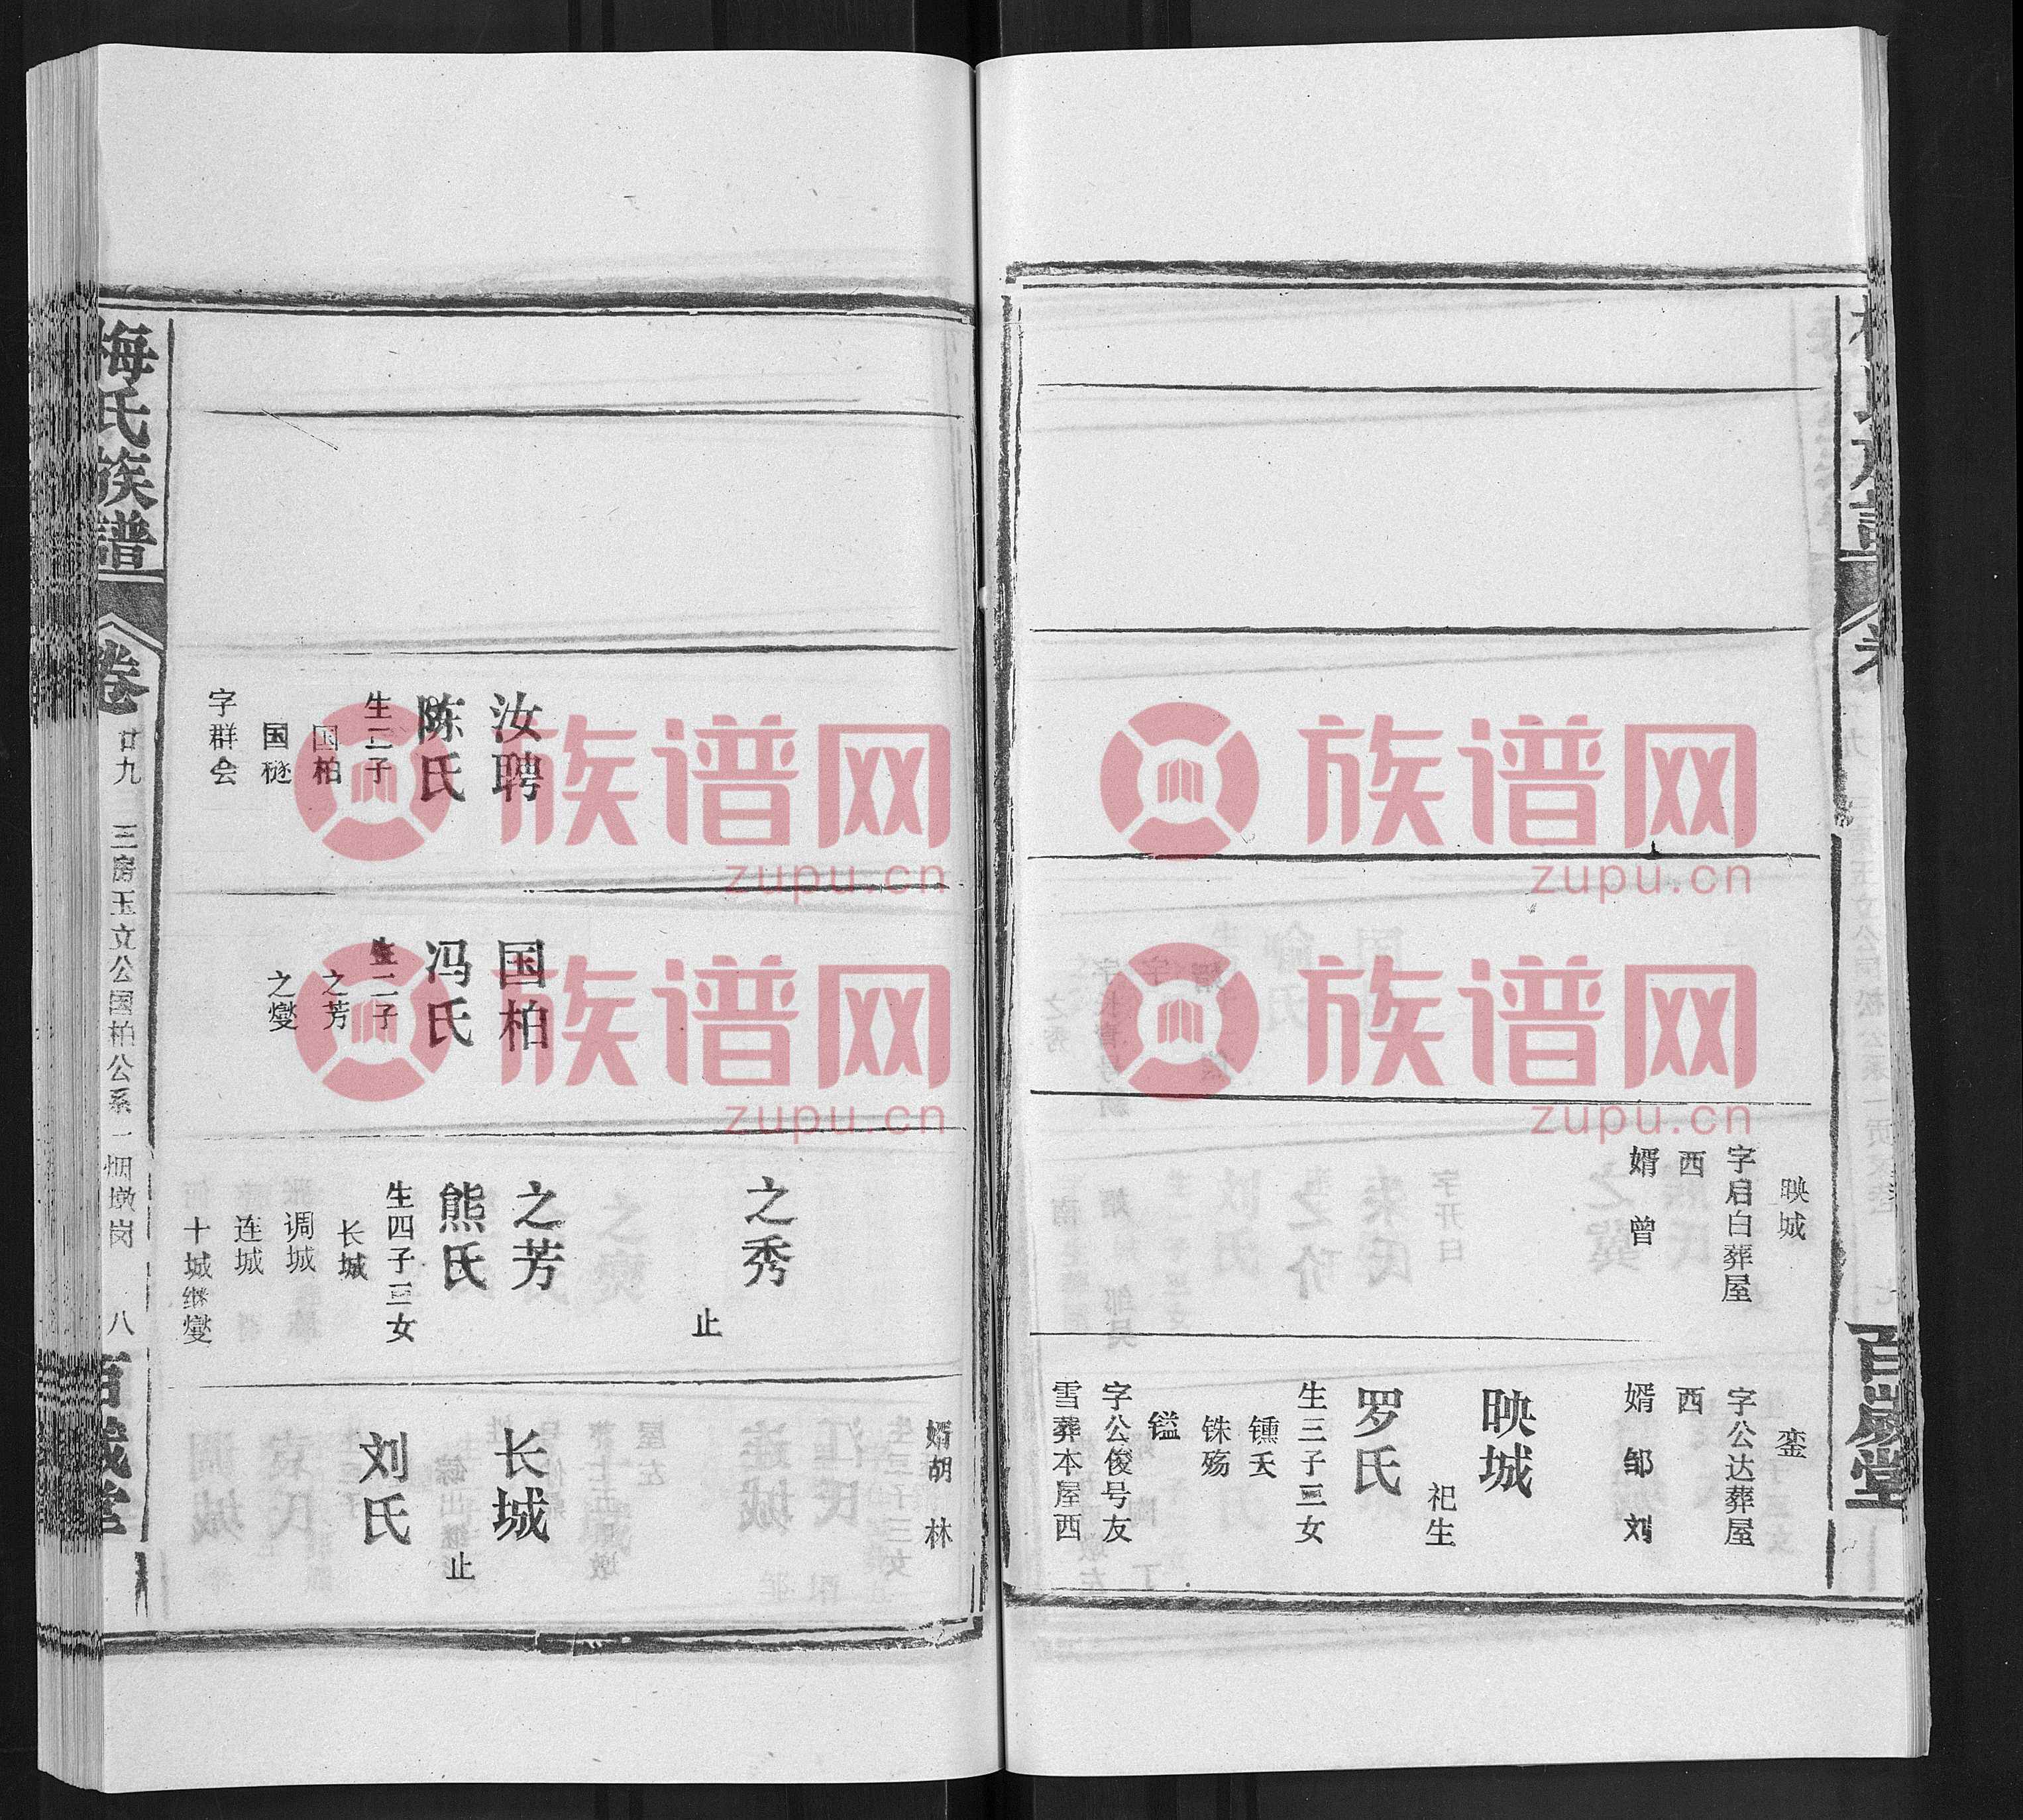 映城
字启白葬屋
西
婿 曾
銮
字公达葬屋
西
婿 邹 刘
映城
祀生
罗氏
生三子三女
铢殇
镒
字公俊号友
雪葬本屋西
百岁堂
汝聘
陈氏
生二子
国柏
国
字群会
国柏
冯氏
生二子
之芳
之燮
之秀
止
之芳
熊氏
生四子三女
长城
调城
连城
十城继燮
婿胡 林
长城
止
刘氏
梅氏族譜
卷
廿九 三房玉文公国柏公系一烟墩岗 八
族谱网
zupu.cn
族谱网
zupu.cn
族谱网
zupu.cn
族谱网
zupu.cn